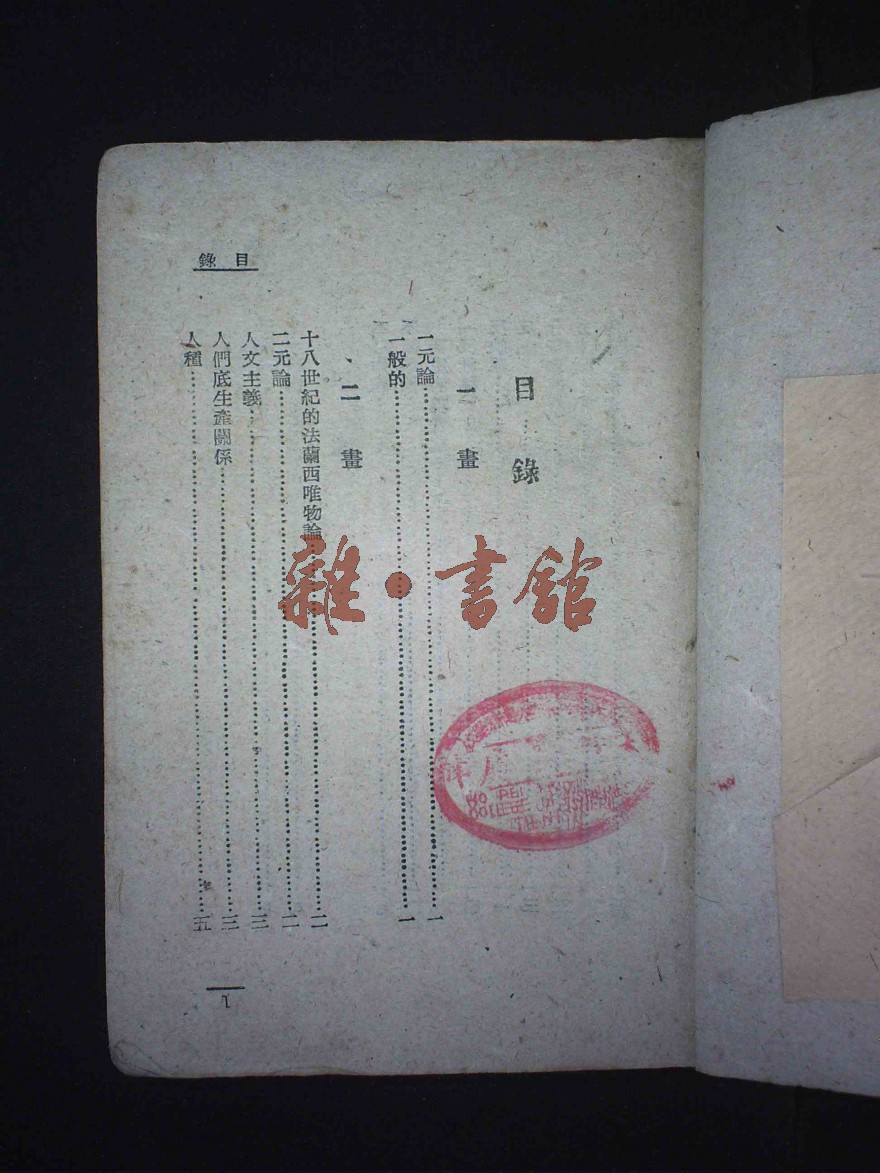 目錄
目錄
一畫
一元論……一
一般的……一
二畫
十八世紀的法蘭西唯物論……二
二元論……二
人文主義……三
人們底生產關係……三
人種……五
1
雜·書館